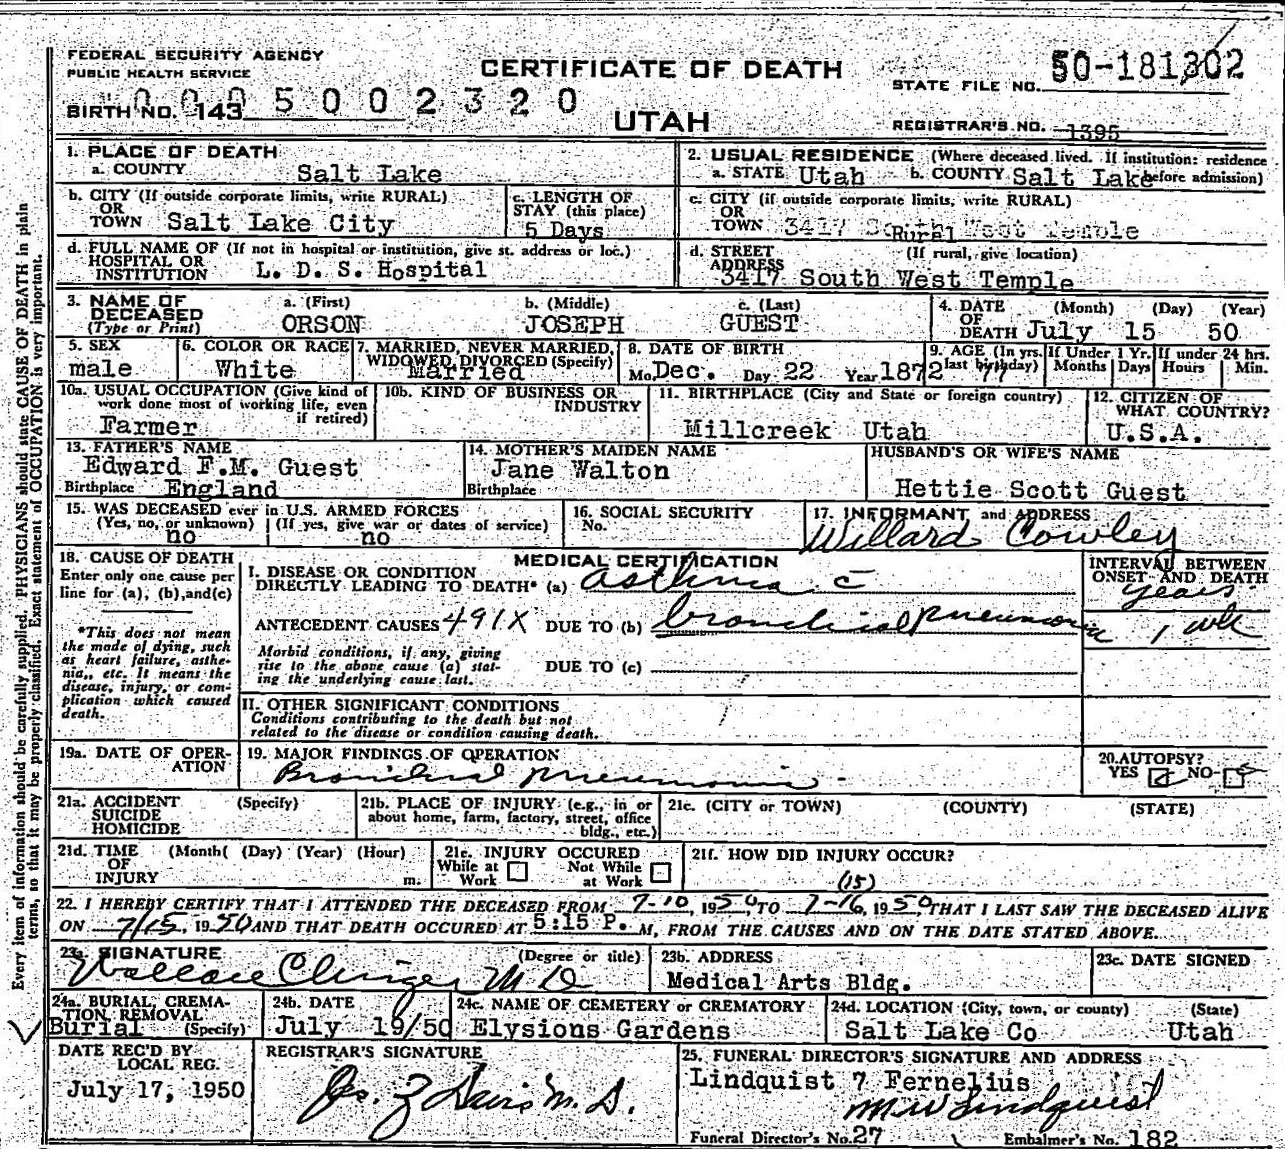 FEDERAL SECURITY AGENCY
PUBLIC HEALTH SERVICE
CERTIFICATE OF DEATH
UTAH
STATE FILE NO. 50-181302
BIRTH NO. 143 0005002320
REGISTRAR'S NO. 1395
1. PLACE OF DEATH
a. COUNTY Salt Lake
2. USUAL RESIDENCE (Where deceased lived. If institution: residence before admission)
a. STATE Utah b. COUNTY Salt Lake
b. CITY (If outside corporate limits, write RURAL)
OR
TOWN Salt Lake City
c. LENGTH OF
STAY (this place)
5 Days
c. CITY (if outside corporate limits, write RURAL)
OR
TOWN 3417 South West Temple
Rural
d. FULL NAME OF (If not in hospital or institution, give st. address or loc.)
HOSPITAL OR
INSTITUTION L. D. S. Hospital
d. STREET (If rural, give location)
ADDRESS
3417 South West Temple
3. NAME OF DECEASED (Type or Print)
a. (First) b. (Middle) c. (Last)
ORSON JOSEPH GUEST
4. DATE OF DEATH (Month) (Day) (Year)
July 15 50
5. SEX
male
6. COLOR OR RACE
White
7. MARRIED, NEVER MARRIED,
WIDOWED, DIVORCED (Specify)
Married
8. DATE OF BIRTH
Mo. Dec. Day 22 Year 1872
9. AGE (In yrs. last birthday) 77
If Under 1 Yr. Months Days
If under 24 hrs. Hours Min.
10a. USUAL OCCUPATION (Give kind of
work done most of working life, even
if retired)
Farmer
10b. KIND OF BUSINESS OR
INDUSTRY
11. BIRTHPLACE (City and State or foreign country)
Millcreek Utah
12. CITIZEN OF
WHAT COUNTRY?
U.S.A.
13. FATHER'S NAME
Edward F.M. Guest
Birthplace England
14. MOTHER'S MAIDEN NAME
Jane Walton
Birthplace
HUSBAND'S OR WIFE'S NAME
Hettie Scott Guest
15. WAS DECEASED ever in U.S. ARMED FORCES
(Yes, no, or unknown) (If yes, give war or dates of service)
no no
16. SOCIAL SECURITY
No.
17. INFORMANT and ADDRESS
Willard Cowley
18. CAUSE OF DEATH
Enter only one cause per
line for (a), (b), and (c)
*This does not mean
the mode of dying, such
as heart failure, asthe-
nia, etc. It means the
disease, injury, or com-
plication which caused
death.
MEDICAL CERTIFICATION
I. DISEASE OR CONDITION
DIRECTLY LEADING TO DEATH* (a) asthma c̄
INTERVAL BETWEEN
ONSET AND DEATH
years
ANTECEDENT CAUSES 491X DUE TO (b) bronchial pneumonia 1 wk
Morbid conditions, if any, giving
rise to the above cause (a) stat-
ing the underlying cause last.
DUE TO (c)
II. OTHER SIGNIFICANT CONDITIONS
Conditions contributing to the death but not
related to the disease or condition causing death.
19a. DATE OF OPER-
ATION
19. MAJOR FINDINGS OF OPERATION
Bronchial pneumonia
20. AUTOPSY?
YES NO
21a. ACCIDENT (Specify)
SUICIDE
HOMICIDE
21b. PLACE OF INJURY (e.g., in or
about home, farm, factory, street, office
bldg., etc.)
21c. (CITY or TOWN) (COUNTY) (STATE)
21d. TIME (Month( (Day) (Year) (Hour)
OF
INJURY m.
21e. INJURY OCCURED
While at Work Not While at Work
21f. HOW DID INJURY OCCUR?
(15)
22. I HEREBY CERTIFY THAT I ATTENDED THE DECEASED FROM 7-10, 1950, TO 7-16, 1950, THAT I LAST SAW THE DECEASED ALIVE
ON 7/15, 1950 AND THAT DEATH OCCURED AT 5:15 P. M, FROM THE CAUSES AND ON THE DATE STATED ABOVE.
23a. SIGNATURE (Degree or title)
Wallace Clinger M D
23b. ADDRESS
Medical Arts Bldg.
23c. DATE SIGNED
24a. BURIAL, CREMA-
TION, REMOVAL
Burial (Specify)
24b. DATE
July 19/50
24c. NAME OF CEMETERY or CREMATORY
Elysions Gardens
24d. LOCATION (City, town, or county) (State)
Salt Lake Co Utah
DATE REC'D BY
LOCAL REG.
July 17, 1950
REGISTRAR'S SIGNATURE
Jos. Z Davis M. D.
25. FUNERAL DIRECTOR'S SIGNATURE AND ADDRESS
Lindquist 7 Fernelius
M W Lindquist
Funeral Director's No. 27 Embalmer's No. 182
Every item of information should be carefully supplied. PHYSICIANS should state CAUSE OF DEATH in plain
terms, so that it may be properly classified. Exact statement of OCCUPATION is very important.